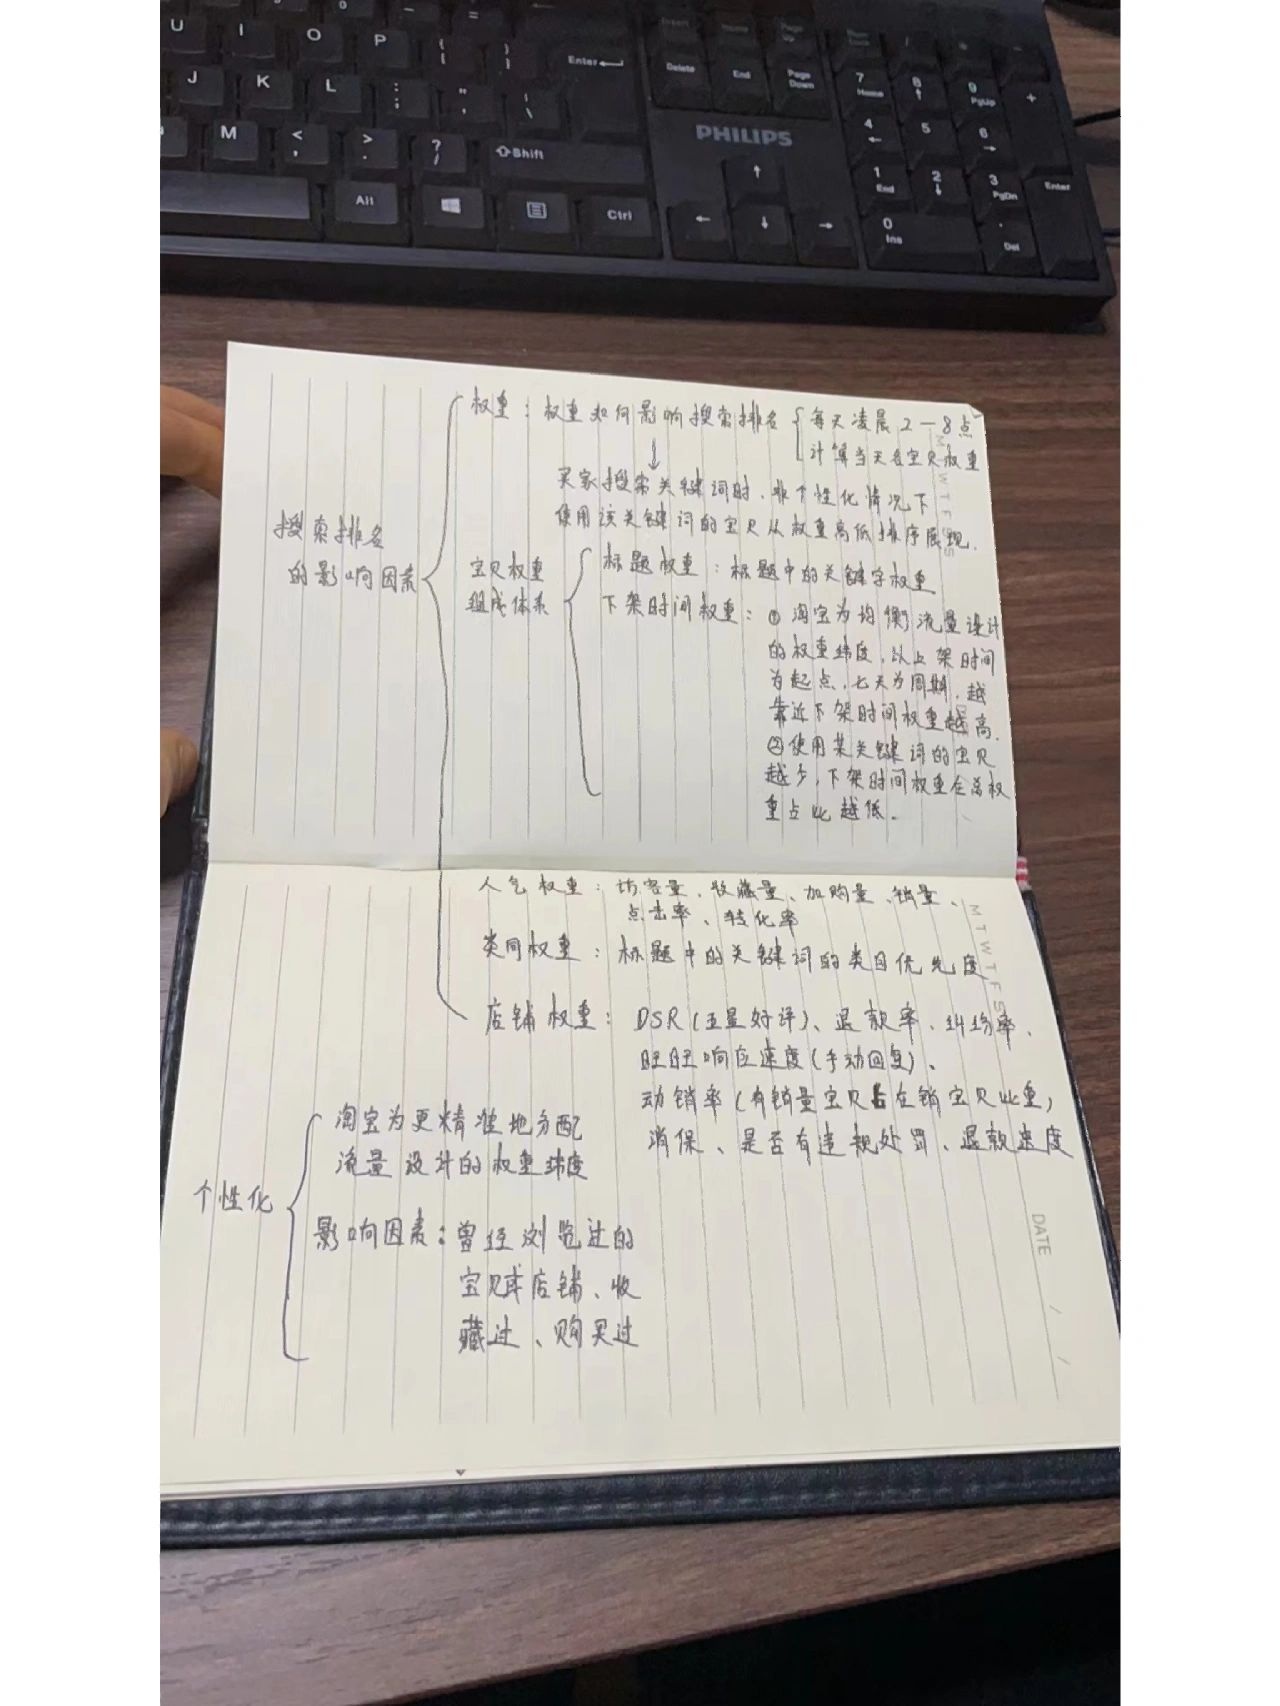 U I O P
J K L : ;
Enter
M < , > . ? /
Shift
Alt
Ctrl
Delete End Page Down
PHILIPS
7 Home 8 9 PgUp +
4 5 6
1 End 2 3 PgDn Enter
0 Ins . Del
权重：权重如何影响搜索排名
每天凌晨2—8点
计算当天各宝贝权重
买家搜索关键词时，非个性化情况下
使用该关键词的宝贝从权重高低排序展现.
搜索排名
的影响因素
宝贝权重
组成体系
标题权重：标题中的关键字权重
下架时间权重：① 淘宝为均衡流量设计
的权重纬度，以上架时间
为起点，七天为周期，越
靠近下架时间权重越高.
②使用某关键词的宝贝
越少，下架时间权重在总权
重占比越低.
人气权重：访客量、收藏量、加购量、销量、
点击率、转化率
类目权重：标题中的关键词的类目优先度
店铺权重：DSR(五星好评)、退款率、纠纷率、
旺旺响应速度(手动回复)、
动销率(有销量宝贝占在销宝贝比重)
消保、是否有违规处罚、退款速度
个性化
淘宝为更精准地分配
流量设计的权重纬度
影响因素：曾经浏览过的
宝贝或店铺、收
藏过、购买过
M T W T F S S
M T W T F S
DATE / /